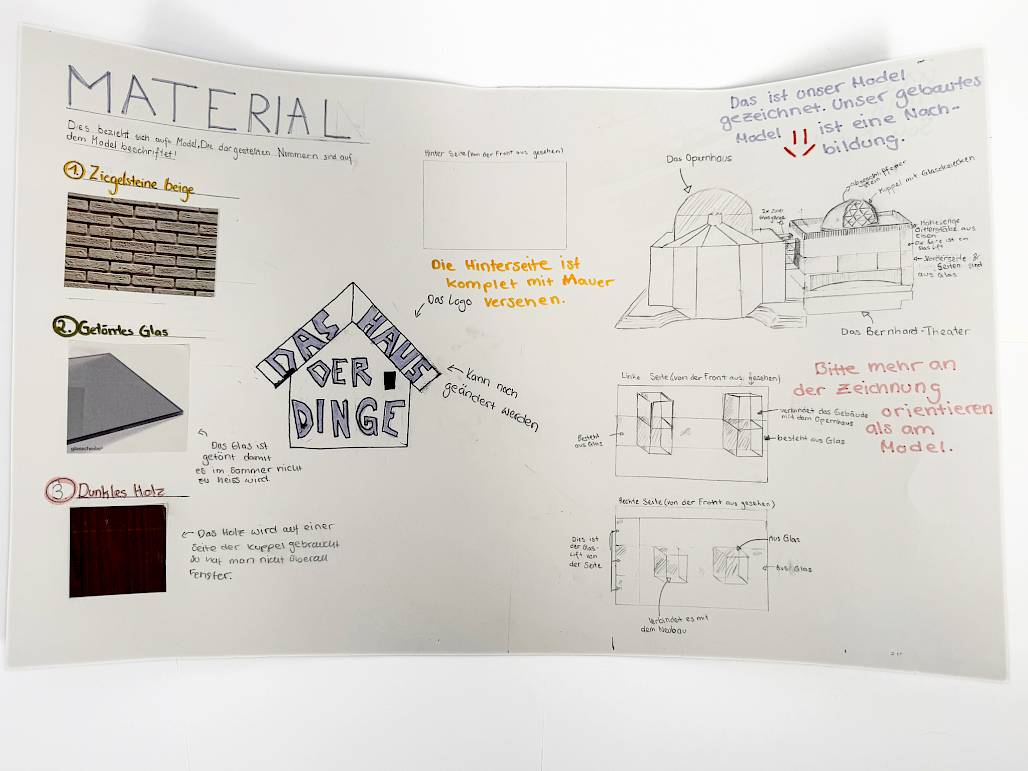 MATERIAL
Dies bezieht sich aufs Model. Die dargestellten Nummern sind auf
dem Model beschriftet!
1. Ziegelsteine beige
2. Getöntes Glas
glasscheibe
Das Glas ist
getönt damit
es im Sommer nicht
zu heiss wird.
3 Dunkles Holz
Das Holz wird auf einer
Seite der Kuppel gebraucht
so hat man nicht überall
Fenster.
Hinter Seite (von der Front aus gesehen)
Die Hinterseite ist
komplet mit Mauer
versehen.
Das Logo
DAS HAUS
DER
DINGE
Kann noch
geändert werden
Das ist unser Model
gezeichnet. Unser gebautes
Model ist eine Nach-
bildung.
Das Opernhaus
Kuppel mit Glasdreiecken
Eisen
Vorderseite &
Seiten sind
aus Glas
Das Bernhard-Theater
Bitte mehr an
der Zeichnung
orientieren
als am
Model.
Linke Seite (von der Front aus gesehen)
Besteht
aus Glas
verbindet das Gebäude
mit dem Opernhaus
besteht aus Glas
Rechte Seite (von der Front aus gesehen)
Dies ist
der Glas-
Lift von
der Seite
Aus Glas
Aus Glas
Verbindet es mit
dem Neubau